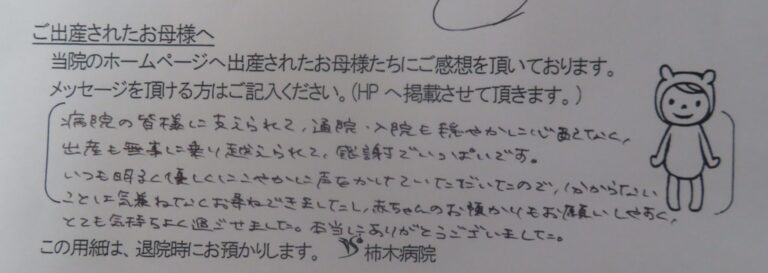 ご出産されたお母様へ
当院のホームページへ出産されたお母様たちにご感想を頂いております。
メッセージを頂ける方はご記入ください。(HPへ掲載させて頂きます。)
病院の皆様に支えられて、通院・入院も穏やかに
出産も無事に乗り越えられて、感謝でいっぱいです。
いつも明るく優しくにこやかに声をかけていただいたので、わからない
ことは気兼ねなくお尋ねできましたし、赤ちゃんのお預かりもお願いしやすく、
とても気持ちよく過ごせました。本当にありがとうございました。
この用紙は、退院時にお預かりします。 柿木病院